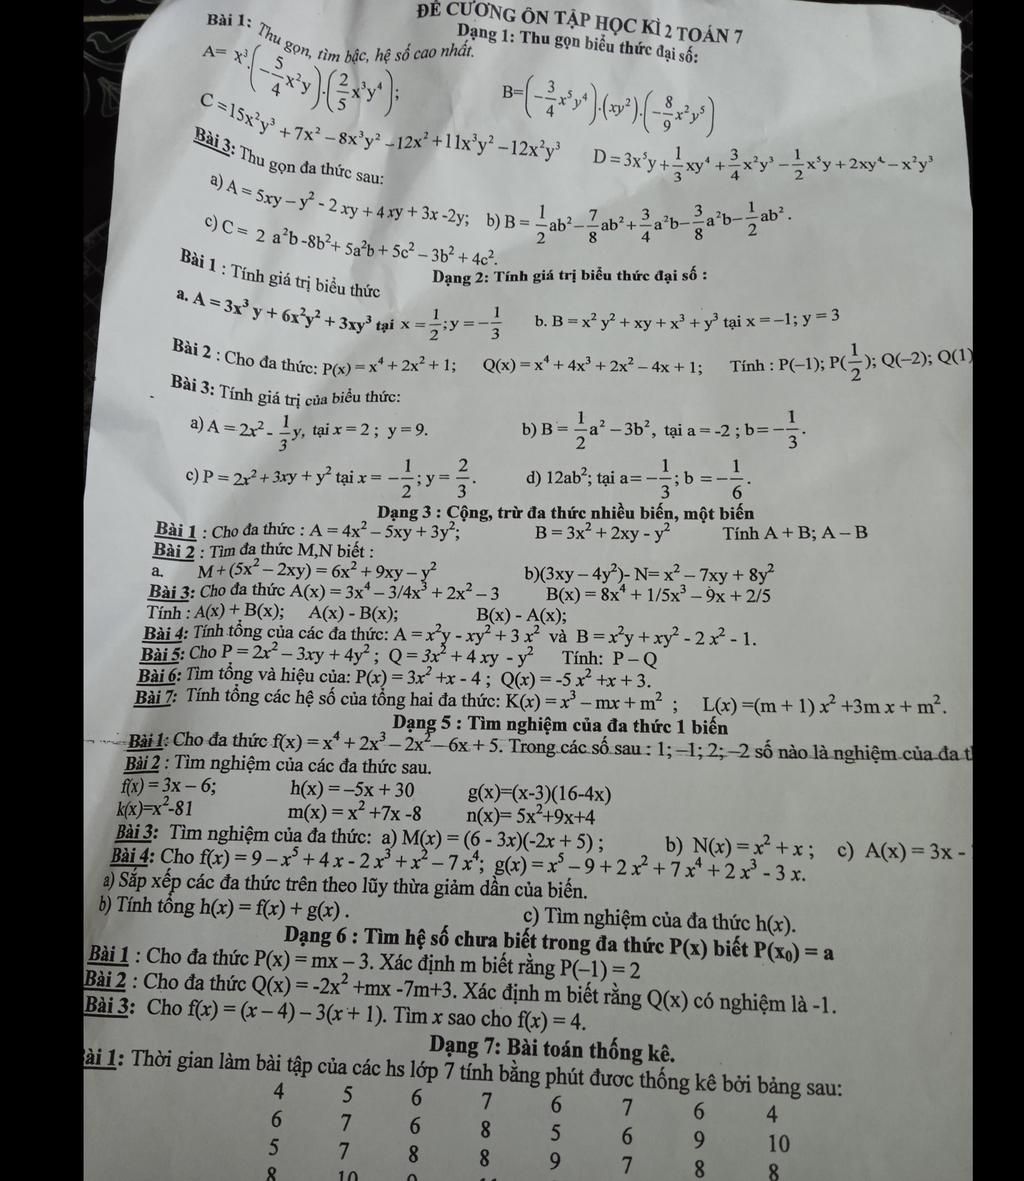 ĐỀ CƯƠNG ÔN TẬP HỌC KÌ 2 TOÁN 7
Dạng 1: Thu gọn biểu thức đại số:
Bài 1: Thu gọn, tìm bậc, hệ số cao nhất.
A= x³.(−5/4 x²y).(2/5 x³y⁴); B=(−3/4 x⁵y⁴).(xy²).(−8/9 x²y⁵)
C =15x²y³ + 7x² – 8x³y² –12x² +11x³y² –12x²y³ D = 3x⁵y + 1/3 xy⁴ + 3/4 x²y³ – 1/2 x⁵y + 2xy⁴ – x²y³
Bài 3: Thu gọn đa thức sau:
a) A = 5xy – y² - 2 xy + 4 xy + 3x -2y; b) B = 1/2 ab² – 7/8 ab² + 3/4 a²b – 3/8 a²b – 1/2 ab².
c) C = 2 a²b -8b²+ 5a²b + 5c² – 3b² + 4c².
Dạng 2: Tính giá trị biểu thức đại số :
Bài 1 : Tính giá trị biểu thức
a. A = 3x³ y + 6x²y² + 3xy³ tại x = 1/2 ; y = −1/3 b. B = x² y² + xy + x³ + y³ tại x = –1; y = 3
Bài 2 : Cho đa thức: P(x) = x⁴ + 2x² + 1; Q(x) = x⁴ + 4x³ + 2x² – 4x + 1; Tính : P(–1); P(1/2); Q(–2); Q(1)
Bài 3: Tính giá trị của biểu thức:
a) A = 2x² - 1/3 y, tại x = 2 ; y = 9. b) B = 1/2 a² – 3b², tại a = -2 ; b = −1/3.
c) P = 2x² + 3xy + y² tại x = −1/2 ; y = 2/3. d) 12ab²; tại a= −1/3 ; b = −1/6.
Dạng 3 : Cộng, trừ đa thức nhiều biến, một biến
Bài 1 : Cho đa thức : A = 4x² – 5xy + 3y²; B = 3x² + 2xy - y² Tính A + B; A – B
Bài 2 : Tìm đa thức M,N biết :
a. M + (5x² – 2xy) = 6x² + 9xy – y² b)(3xy – 4y²)- N= x² – 7xy + 8y²
Bài 3: Cho đa thức A(x) = 3x⁴ – 3/4x³ + 2x² – 3 B(x) = 8x⁴ + 1/5x³ – 9x + 2/5
Tính : A(x) + B(x); A(x) - B(x); B(x) - A(x);
Bài 4: Tính tổng của các đa thức: A = x²y - xy² + 3 x² và B = x²y + xy² - 2 x² - 1.
Bài 5: Cho P = 2x² – 3xy + 4y² ; Q = 3x² + 4 xy - y² Tính: P – Q
Bài 6: Tìm tổng và hiệu của: P(x) = 3x² +x - 4 ; Q(x) = -5 x² +x + 3.
Bài 7: Tính tổng các hệ số của tổng hai đa thức: K(x) = x³ – mx + m² ; L(x) =(m + 1) x² +3m x + m².
Dạng 5 : Tìm nghiệm của đa thức 1 biến
Bài 1: Cho đa thức f(x) = x⁴ + 2x³ – 2x² – 6x + 5. Trong các số sau : 1; –1; 2; –2 số nào là nghiệm của đa
Bài 2 : Tìm nghiệm của các đa thức sau.
f(x) = 3x – 6; h(x) = –5x + 30 g(x)=(x-3)(16-4x)
k(x)=x²-81 m(x) = x² +7x -8 n(x)= 5x²+9x+4
Bài 3: Tìm nghiệm của đa thức: a) M(x) = (6 - 3x)(-2x + 5) ; b) N(x) = x² + x ; c) A(x) = 3x -
Bài 4: Cho f(x) = 9 – x⁵ + 4 x - 2 x³ + x² – 7 x⁴; g(x) = x⁵ – 9 + 2 x² + 7 x⁴ + 2 x³ - 3 x.
a) Sắp xếp các đa thức trên theo lũy thừa giảm dần của biến.
b) Tính tổng h(x) = f(x) + g(x) . c) Tìm nghiệm của đa thức h(x).
Dạng 6 : Tìm hệ số chưa biết trong đa thức P(x) biết P(x₀) = a
Bài 1 : Cho đa thức P(x) = mx – 3. Xác định m biết rằng P(–1) = 2
Bài 2 : Cho đa thức Q(x) = -2x² +mx -7m+3. Xác định m biết rằng Q(x) có nghiệm là -1.
Bài 3: Cho f(x) = (x – 4) – 3(x + 1). Tìm x sao cho f(x) = 4.
Dạng 7: Bài toán thống kê.
Bài 1: Thời gian làm bài tập của các hs lớp 7 tính bằng phút đươc thống kê bởi bảng sau:
4 5 6 7 6 7 6 4
6 7 6 8 5 6 9 10
5 7 8 8 9 7 8 8
8 10